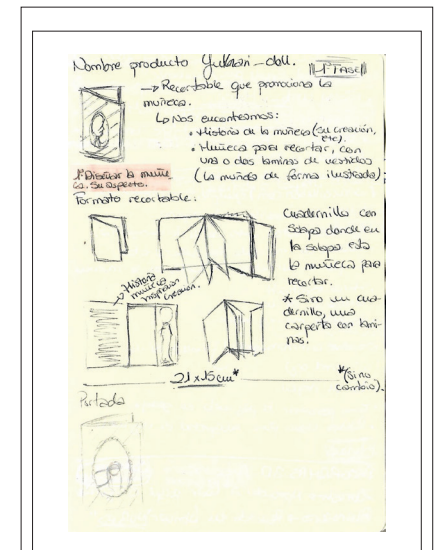 Nombre producto Yukari-doll. 1ª FASE
→ Recortable que promociona la
muñeca.
↳ Nos encontramos:
• Historia de la muñeca (su creación,
etc).
• Muñeca para recortar, con
una o dos laminas de vestidos
(la muñeca de forma ilustrada).
1º Diseñar la muñe
ca. Su aspecto.
Formato recortable:
Cuadernillo con
solapa donde en
la solapa esta
la muñeca para
recortar.
→ Historia
muñeca
inspiración
creación.
* Sino un cua
dernillo, una
carpeta con lami-
nas.
21 x 15 cm*
*(sino
cambio).
Portada